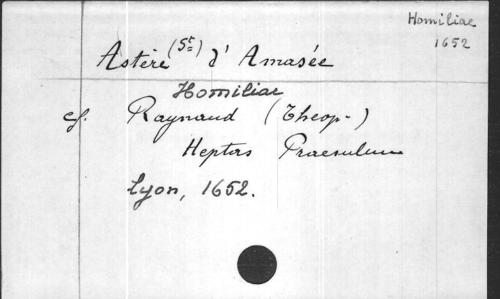 Homiliae
1652
Astère (St) d'Amasée
Homiliae
cf. Raynaud (Theop.)
Heptas Praesulum
Lyon, 1652.